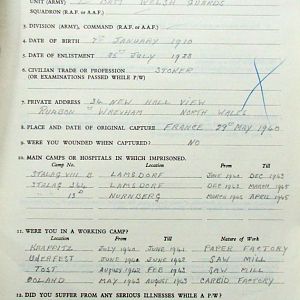 UNIT (ARMY) BATT WELSH GUARDS
SQUADRON (R.A.F. or A.A.F.)
3. DIVISION (ARMY), COMMAND (R.A.F. or A.A.F.)
4. DATE OF BIRTH 7TH JANUARY 1910
5. DATE OF ENLISTMENT 25TH JULY 1928
6. CIVILIAN TRADE OR PROFESSION STOKER
(OR EXAMINATIONS PASSED WHILE P/W)
7. PRIVATE ADDRESS 34 NEW HALL VIEW
RUABON WREXHAM NORTH WALES
8. PLACE AND DATE OF ORIGINAL CAPTURE FRANCE 29TH MAY 1940
9. WERE YOU WOUNDED WHEN CAPTURED? NO
10. MAIN CAMPS OR HOSPITALS IN WHICH IMPRISONED.
Camp No. Location From Till
STALAG VIII B LAMSDORF JUNE 1940 DEC 1943
STALAG 344 LAMSDORF DEC 1943 MARCH 1945
" 13D NURNBERG MARCH 1945 APRIL 1945
11. WERE YOU IN A WORKING CAMP?
Location From Till Nature of Work
KRAPPITZ JULY 1940 JUNE 1941 PAPER FACTORY
JUNE 1942 SAW MILL
TOST AUGUST 1942 FEB 1943 SAW MILL
POLAND MAY 1943 AUGUST 1943 CARBID FACTORY
12. DID YOU SUFFER FROM ANY SERIOUS ILLNESSES WHILE A P/W?